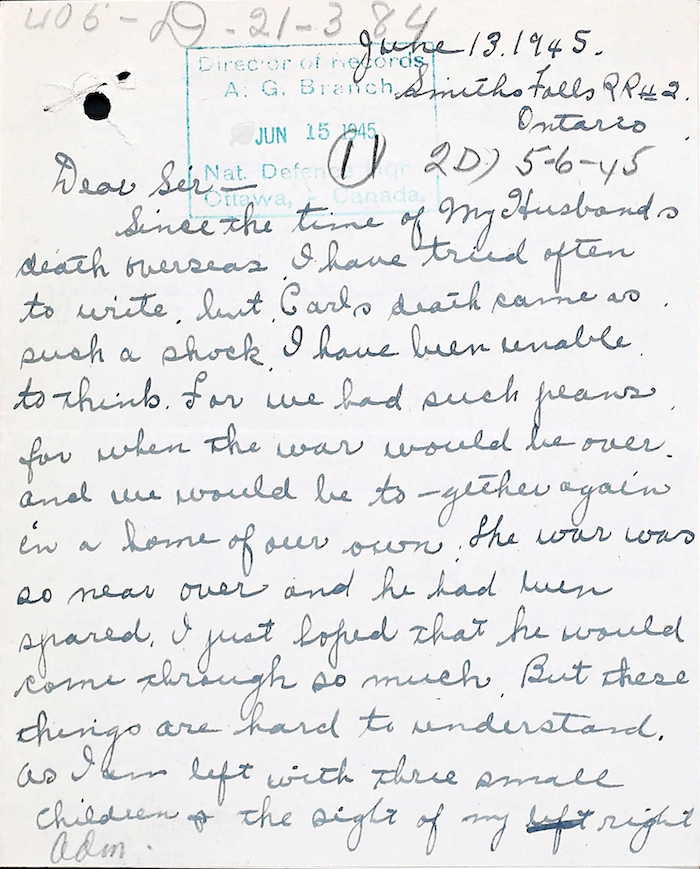 405-D-21-384
June 13. 1945.
Director of Records
A. G. Branch
Smiths Falls RR#2.
Ontario
JUN 15 1945
(1) 2D) 5-6-45
Nat. Defence
Ottawa, - Canada.
Dear Sir—
Since the time of My Husbands
death overseas, I have tried often
to write, but, Carls death came as
such a shock, I have been unable
to think. For we had such peans
for when the war would be over.
and we would be to-gether again
in a home of our own. The war was
so near over and he had been
spared, I just hoped that he would
come through so much. But these
things are hard to understand.
as I am left with three small
children & the sight of my left right
adm.